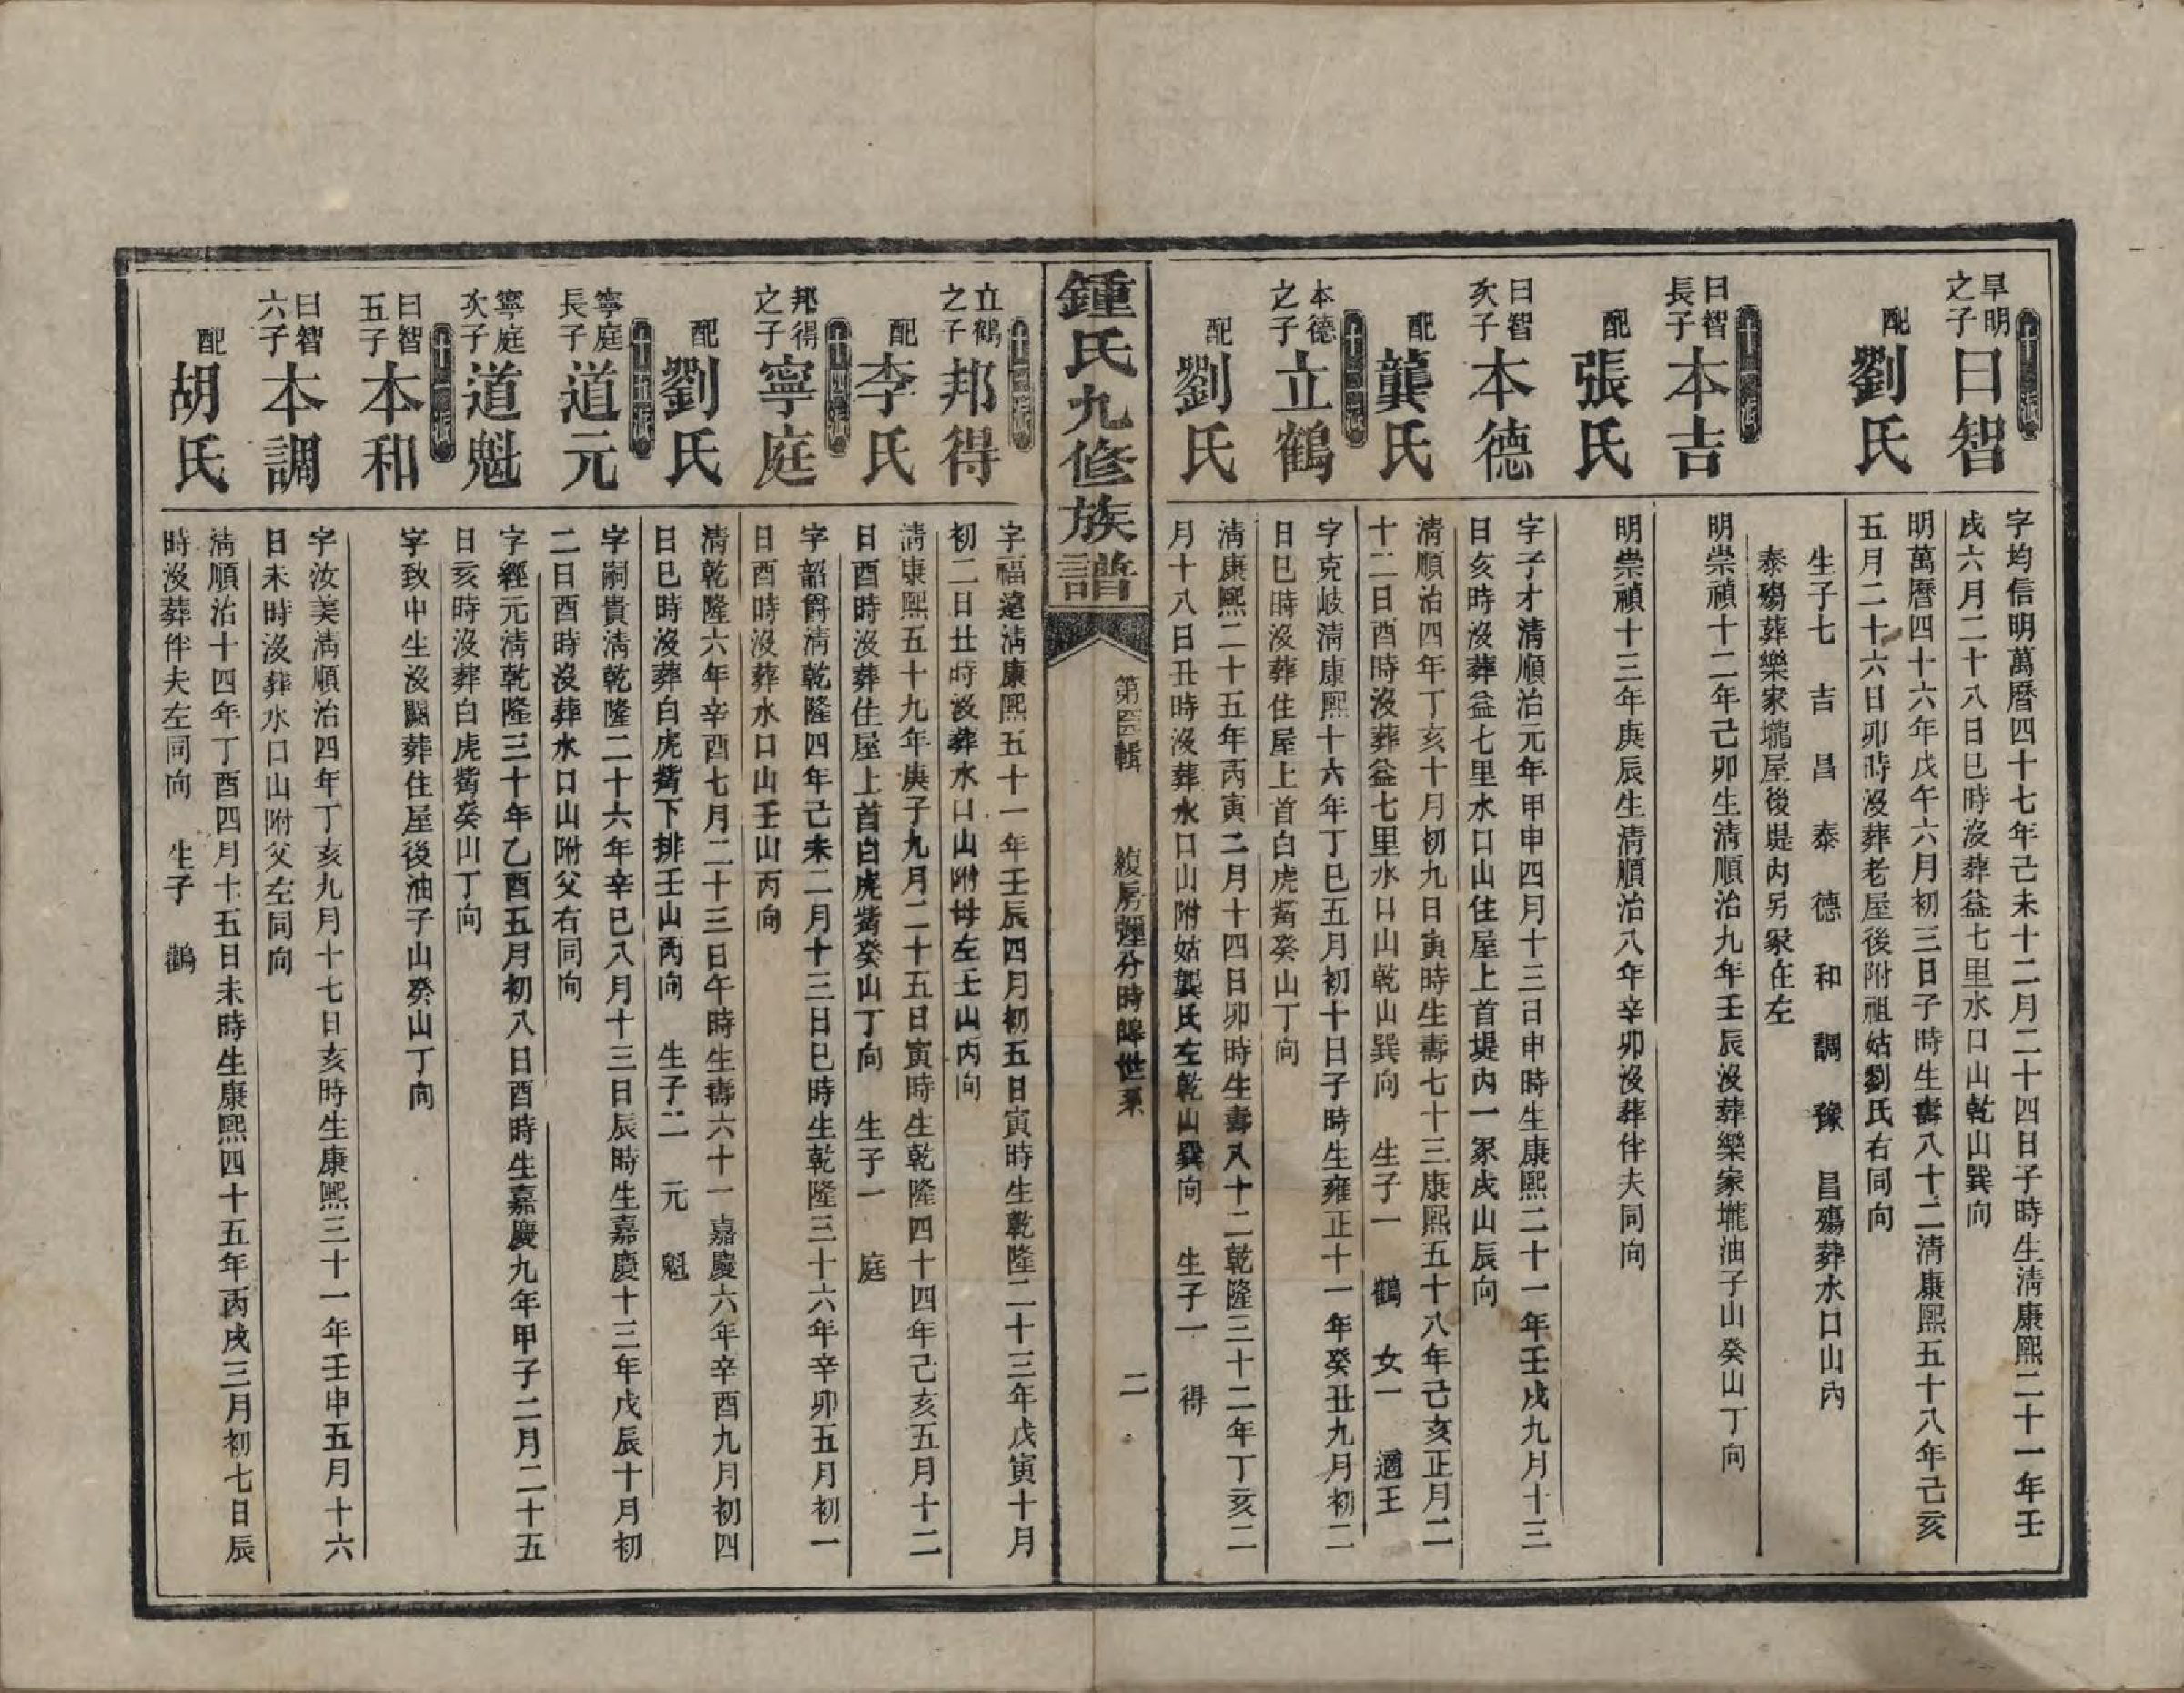 十一派
早明之子
曰智
字均信明萬曆四十七年己未十二月二十四日子時生淸康熙二十一年壬
戌六月二十八日巳時沒葬益七里水口山乾山巽向
配
劉氏
明萬曆四十六年戊午六月初三日子時生壽八十二淸康熙五十八年己亥
五月二十六日卯時沒葬老屋後附祖姑劉氏右同向
生子七 吉 昌 泰 德 和 調 豫 昌殤葬水口山內
泰殤葬樂家壠屋後堤內另冢在左
十二派
曰智長子
本吉
明崇禎十二年己卯生淸順治九年壬辰沒葬樂家壠油子山癸山丁向
配
張氏
明崇禎十三年庚辰生淸順治八年辛卯沒葬伴夫同向
曰智次子
本德
字子才淸順治元年甲申四月十三日申時生康熙二十一年壬戌九月十三
日亥時沒葬益七里水口山住屋上首堤內一冢戌山辰向
配
龔氏
淸順治四年丁亥十月初九日寅時生壽七十三康熙五十八年己亥正月二
十二日酉時沒葬益七里水口山乾山巽向 生子一 鶴 女一 適王
十三派
本德之子
立鶴
字克岐淸康熙十六年丁巳五月初十日子時生雍正十一年癸丑九月初二
日巳時沒葬住屋上首白虎嘴癸山丁向
配
劉氏
淸康熙二十五年丙寅二月十四日卯時生壽八十二乾隆三十二年丁亥二
月十八日丑時沒葬水口山附姑龔氏左乾山巽向 生子一 得
鍾氏九修族譜
第四輯 綎房 分時 世系 二
十三派
立鶴之子
邦得
字福遠淸康熙五十一年壬辰四月初五日寅時生乾隆二十三年戊寅十月
初二日丑時沒葬水口山附母左壬山丙向
配
李氏
淸康熙五十九年庚子九月二十五日寅時生乾隆四十四年己亥五月十二
日酉時沒葬住屋上首白虎嘴癸山丁向 生子一 庭
十四派
邦得之子
寧庭
字韶爵淸乾隆四年己未二月十三日巳時生乾隆三十六年辛卯五月初一
日酉時沒葬水口山壬山丙向
配
劉氏
淸乾隆六年辛酉七月二十三日午時生壽六十一嘉慶六年辛酉九月初四
日巳時沒葬白虎嘴下排壬山丙向 生子二 元 魁
十五派
寧庭長子
道元
字嗣貴淸乾隆二十六年辛巳八月十三日辰時生嘉慶十三年戊辰十月初
二日酉時沒葬水口山附父右同向
寧庭次子
道魁
字經元淸乾隆三十年乙酉五月初八日酉時生嘉慶九年甲子二月二十五
日亥時沒葬白虎嘴癸山丁向
十二派
曰智五子
本和
字致中生沒闕葬住屋後油子山癸山丁向
曰智六子
本調
字汝美淸順治四年丁亥九月十七日亥時生康熙三十一年壬申五月十六
日未時沒葬水口山附父左同向
配
胡氏
淸順治十四年丁酉四月十五日未時生康熙四十五年丙戌三月初七日辰
時沒葬伴夫左同向 生子 鸛